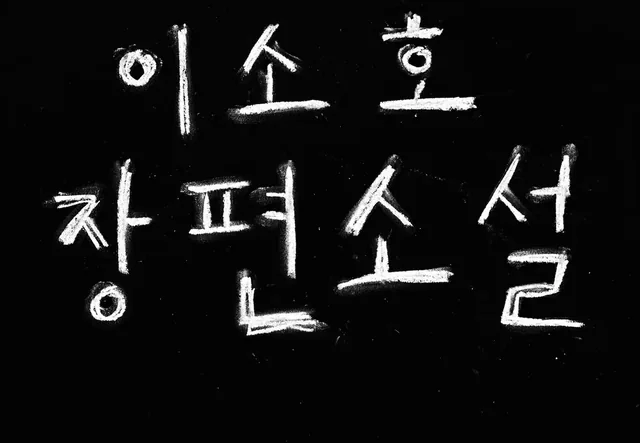 이소호
장편소설